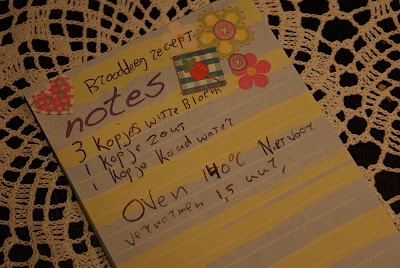 Brooddeeg recept
notes
3 Kopjes witte Bloem
1 Kopje zout
1 Kopje Koud water
Oven 140°C Niet voor
verwarmen 1,5 uur,